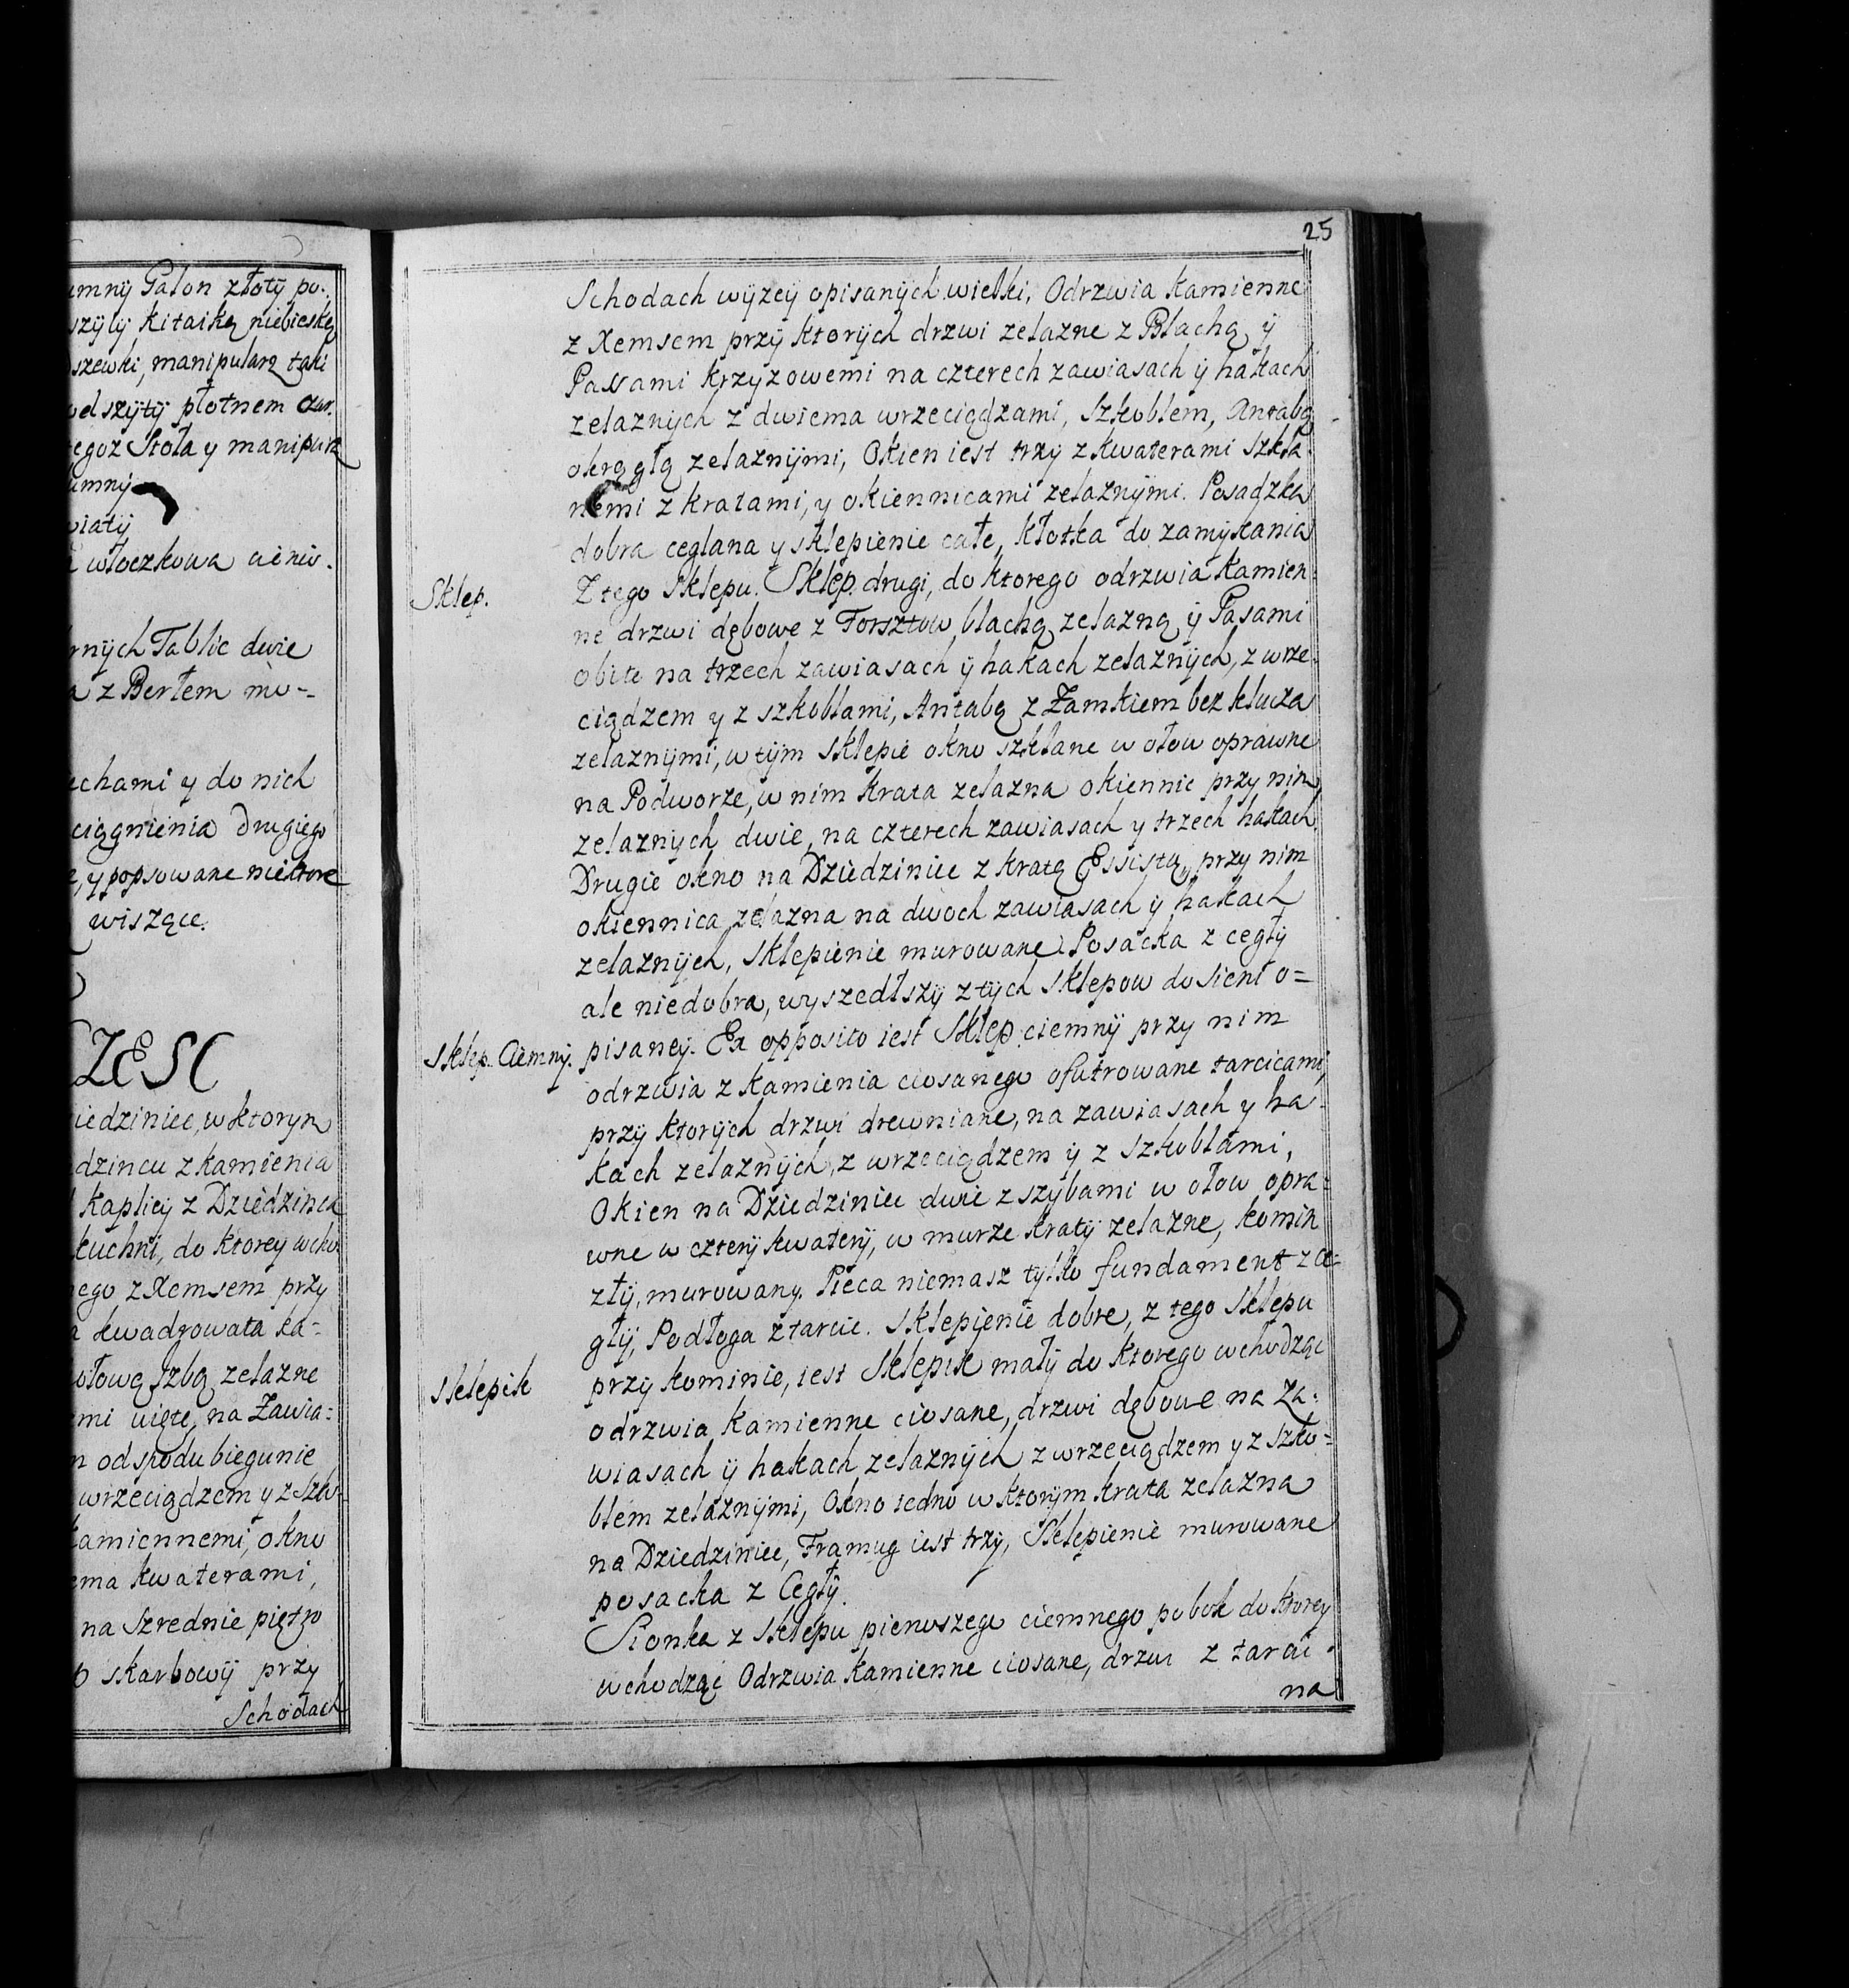 umnÿ Galon złotÿ po-
szÿtÿ kitaiką niebieską
szewki, manipularz taki
odszÿtÿ płotnem czar.
tegoz Stoła y manipurz
umnÿ
wiatÿ
włoczkowa
rnÿch Tablic dwie
a z Berłem
echami y do nich
ciągnienia Drugiego
e, y popsowane niektore
wiszące.
ZESC
iedziniec, w ktorym
dzincu z kamienia
kaplicÿ z Dziedzinca
kuchni, do ktorey wcho
nego z Xemsem przy
a kwadrowata ka=
ołową szbą zelazne
mi uięte, na Zawia=
m odspodu biegunie
wrzeciądzem y z Szko-
kamiennemi, okno
ema kwaterami,
na Szrednie piętro
o skarbowÿ przy
Schodach
25
Schodach wÿzeÿ opisanÿch wielki, Odrzwia Kamienne
z Xemsem przÿ ktorÿch drzwi zelazne z Blachą ÿ
Passami krzÿzowemi na czterech zawiasach ÿ hakach
zelaznÿch z dwiema wrzeciądzami, Szkoblem, Antabą
okrągłą zelaznÿmi, Okien iest trzÿ z kwaterami szkla-
nemi z kratami, y okiennicami zelaznÿmi. Posadzka
dobra ceglana y sklepienie całe, kłotka do zamÿkania
Sklep.
Z tego Sklepu. Sklep drugi, do ktorego odrzwia kamien-
ne drzwi dębowe z Forsztow blachą zelazną ÿ Pasami
obite na trzech zawiasach ÿ hakach zelaznÿch, z wrze-
ciądzem y z szkoblami, Antabą z Zamkiem bez klucza
zelaznÿmi, w tÿm Sklepie okno szklane w ołow oprawne
na Podworze, w nim krata zelazna okiennic przy nim
zelaznÿch dwie, na czterech zawiasach y trzech hakach.
Drugie okno na Dziedziniec z kratą Essistą, przy nim
okiennica zelazna na dwoch zawiasach ÿ hakach
zelaznÿch, Sklepienie murowane Posacka z cegłÿ
ale niedobra, wyszedłszÿ z tÿch Sklepow do Sieni o=
Sklep Ciemnÿ.
pisaneÿ. Ex opposito iest Sklep ciemnÿ przy nim
odrzwia z kamienia ciosanego ofutrowane tarcicami,
przÿ ktorÿch drzwi drewniane, na zawiasach y ha-
kach zelaznÿch, z wrzeciądzem ÿ z Szkoblami,
Okien na Dziedziniec dwie z szÿbami w ołow opra=
wne w czterÿ kwaterÿ, w murze kratÿ zelazne, komin
złÿ, murowany. Pieca niemasz tylko fundament z ce=
głÿ, Podłoga z tarcic. Sklepienie dobre, z tego Sklepu
Sklepik
przÿ kominie, iest Sklepik małÿ do ktorego wchodząc
odrzwia kamienne ciosane, drzwi dębowe na Za=
wiasach ÿ hakach zelaznÿch z wrzeciądzem y z Szko=
blem zelaznÿmi, Okno iedno w ktorÿm krata zelazna
na Dziedziniec, Framug iest trzÿ, Sklepienie murowane
posacka z Cegłÿ.
Sionka z Sklepu pierwszego ciemnego pobok do ktorey
wchodząc Odrzwia kamienne ciosane, drzwi z tarcic
na